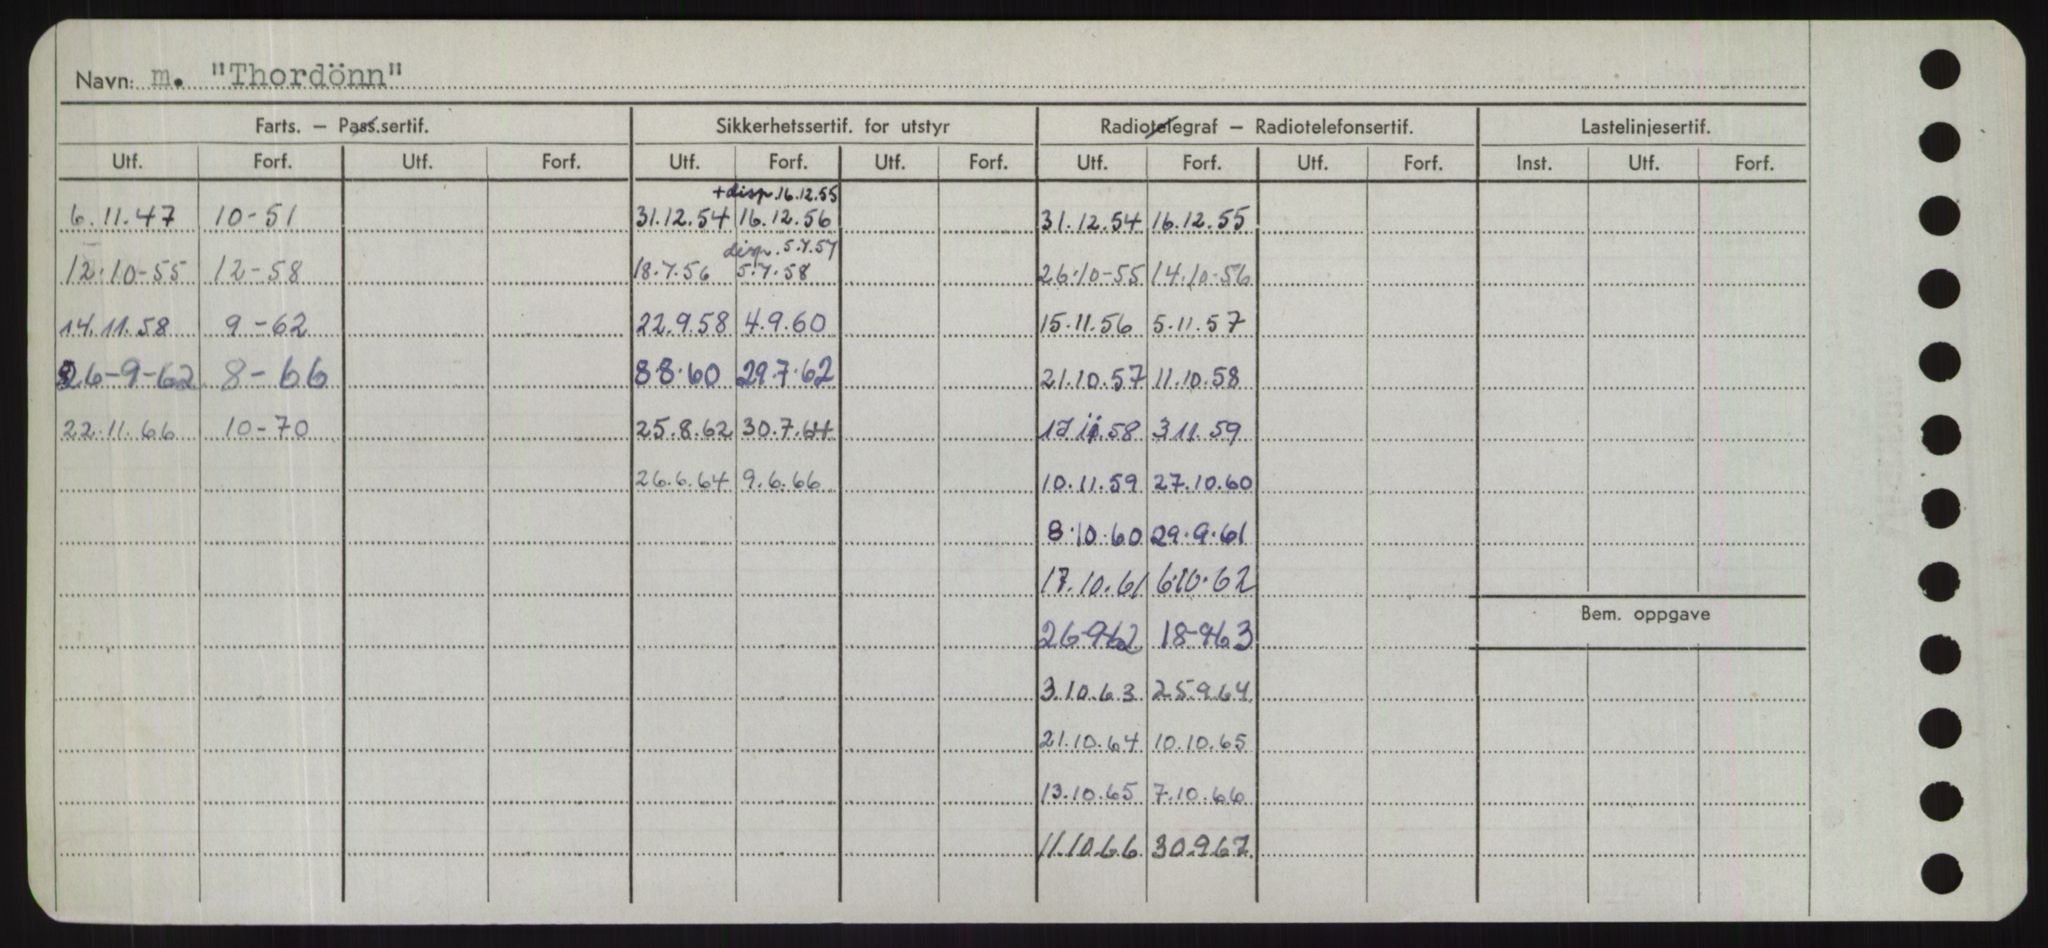 Navn: m. "Thordönn"
Farts. – Pass.sertif. Sikkerhetssertif. for utstyr Radiotelegraf – Radiotelefonsertif. Lastelinjesertif.
Utf. Forf. Utf. Forf. Utf. Forf. Utf. Forf. Utf. Forf. Utf. Forf. Inst. Utf. Forf.
+disp. 16.12.55
6.11.47 10-51 31.12.54 16.12.56 31.12.54 16.12.55
disp. 5.7.57
12-10-55 12-58 18.7.56 5.7.58 26-10-55 14.10-56
14.11.58 9-62 22.9.58 4.9.60 15.11.56 5.11.57
26-9-62 8-66 8.8.60 29.7.62 21.10.57 11.10.58
22.11.66 10-70 25.8.62 30.7.64 17.11.58 3.11.59
26.6.64 9.6.66 10.11.59 27.10.60
8.10.60 29.9.61
17.10.61 6.10.62
26-9-62 18-9-63
3.10.63 25.9.64
21.10.64 10.10.65
Bem. oppgave
13.10.65 7.10.66
11.10.66 30.9.67